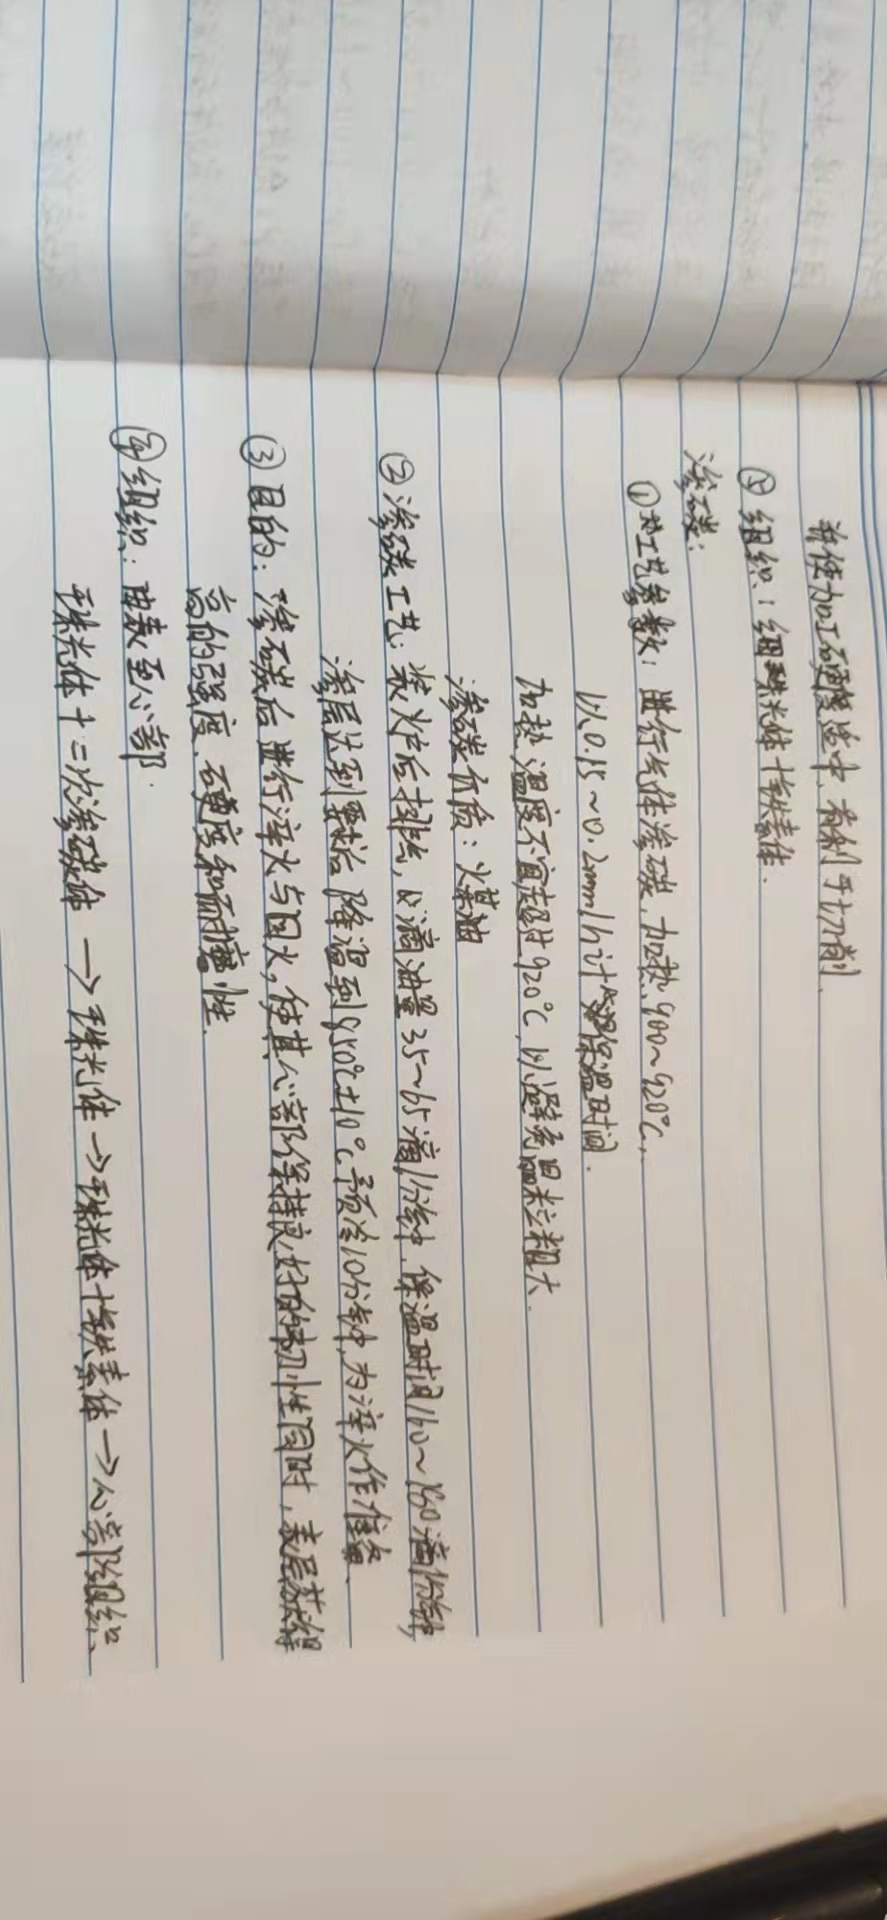 并使加工硬度适中，有利于切削．
⑤ 组织：细珠光体＋铁素体．
渗碳：
① 热工艺参数：进行气体渗碳，加热900~920℃，
以0.15~0.2mm/h计算保温时间．
加热温度不宜超过920℃，以避免晶粒粗大．
渗碳介质：煤油
② 渗碳工艺：装炉后排气，以滴油量35~65滴/分钟，保温时间160~180滴/分钟，
渗层达到要求后，降温到850℃±10℃预冷10分钟，为淬火作准备．
③ 目的：渗碳后进行淬火与回火，使其心部保持良好的韧性同时，表层获得
高的强度、硬度和耐磨性．
④ 组织：由表至心部．
珠光体＋二次渗碳体→珠光体→珠光体＋铁素体→心部组织．